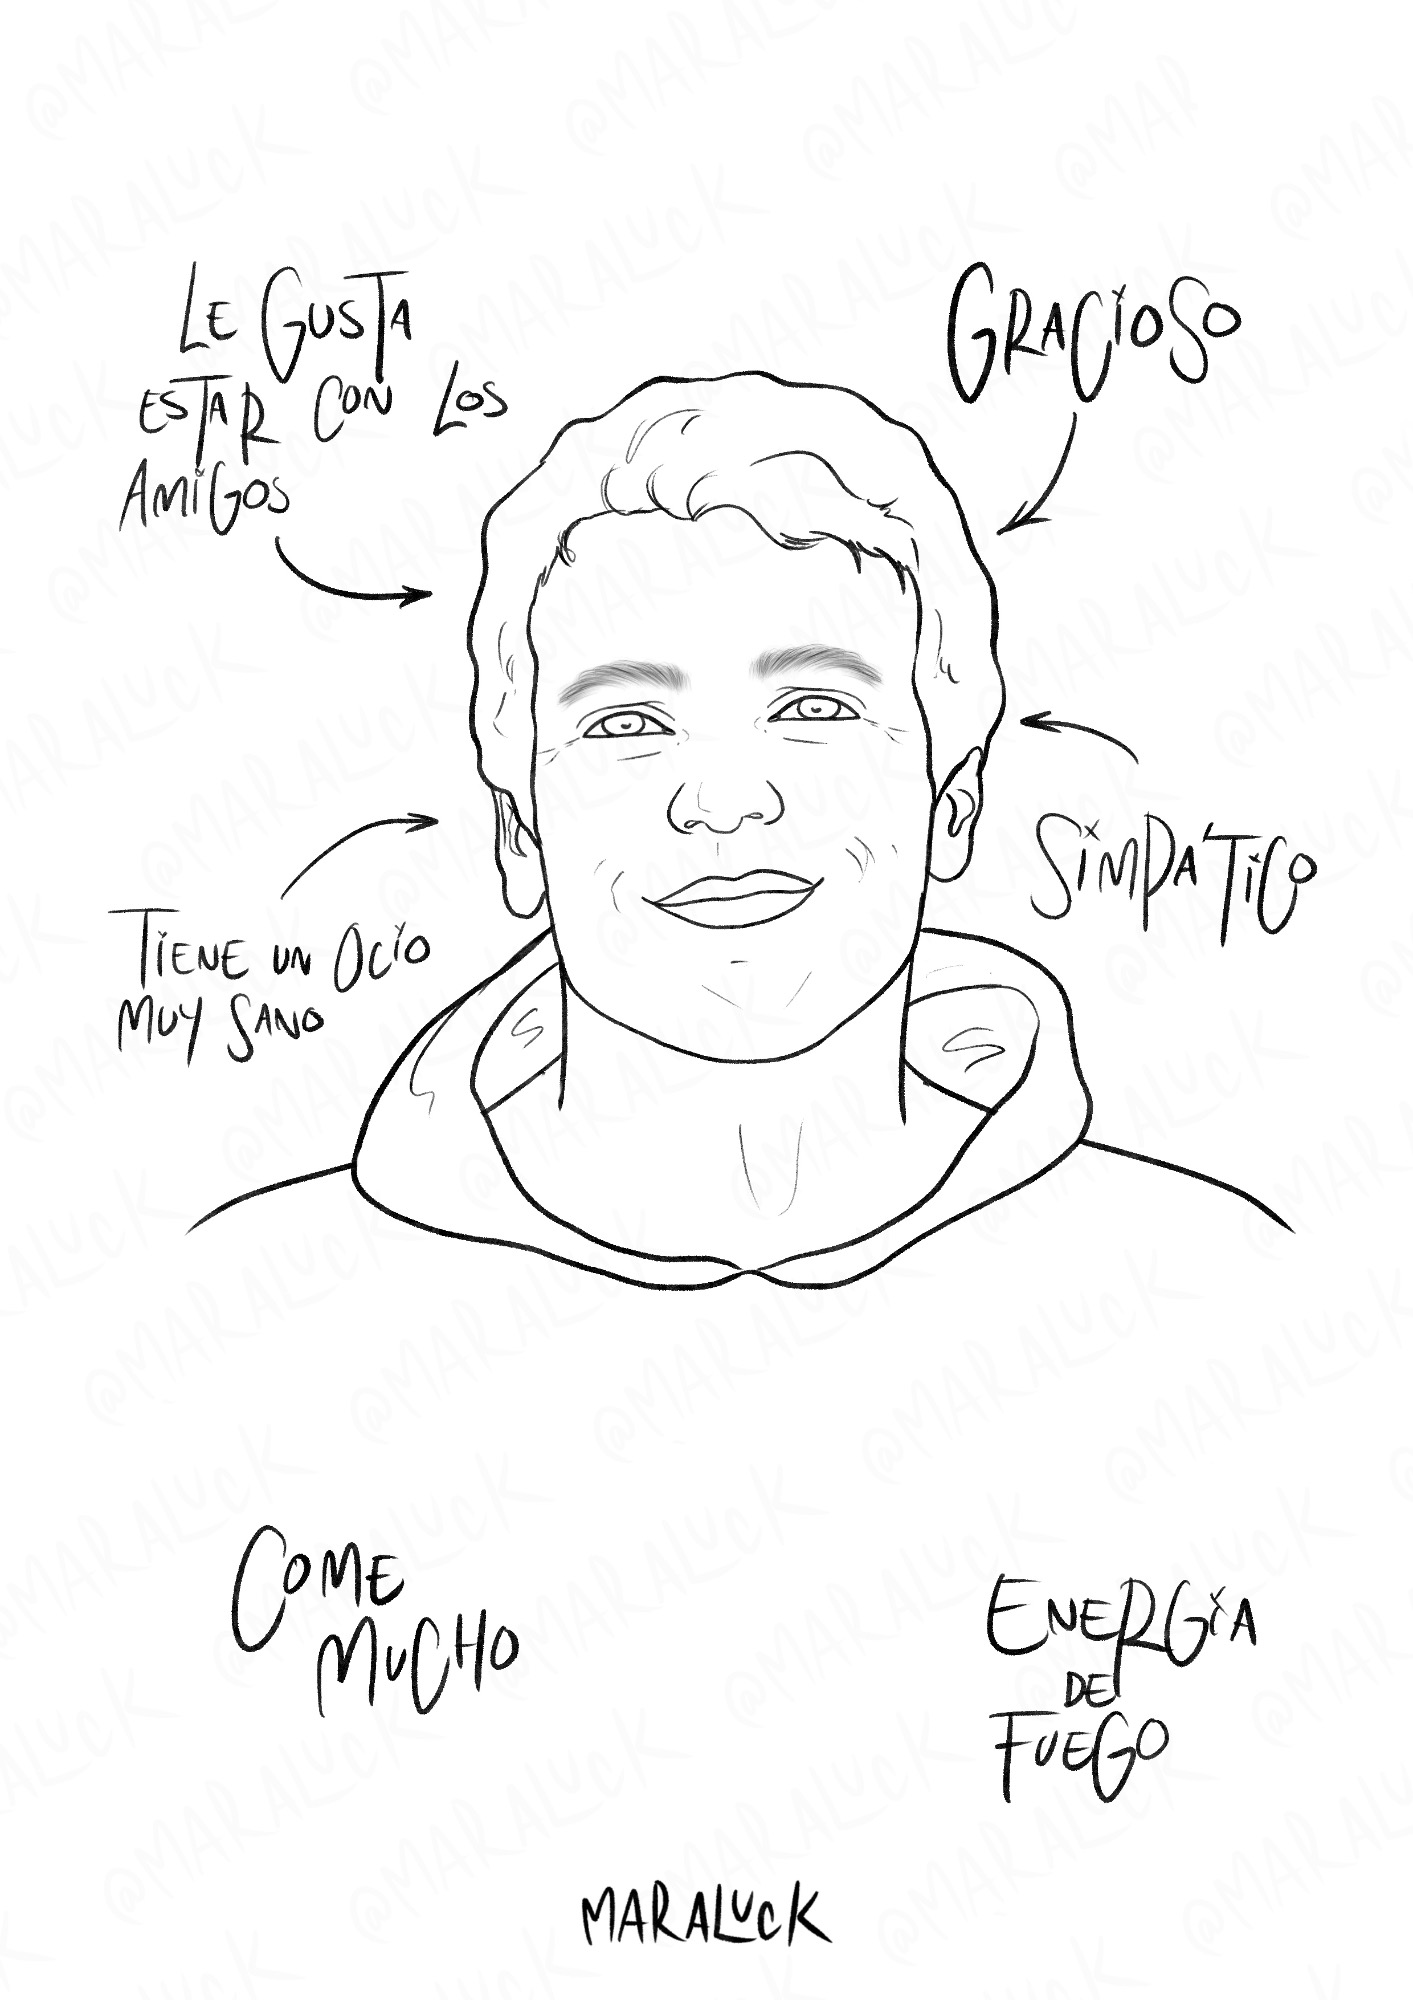 LE GUSTA
ESTAR CON LOS
AMiGOS
GRACiOSO
SiMPÁTiCO
TiENE UN OCiO
MUY SANO
COME
MUCHO
ENERGíA
DE
FUEGO
MARALUCK
@MARALUCK